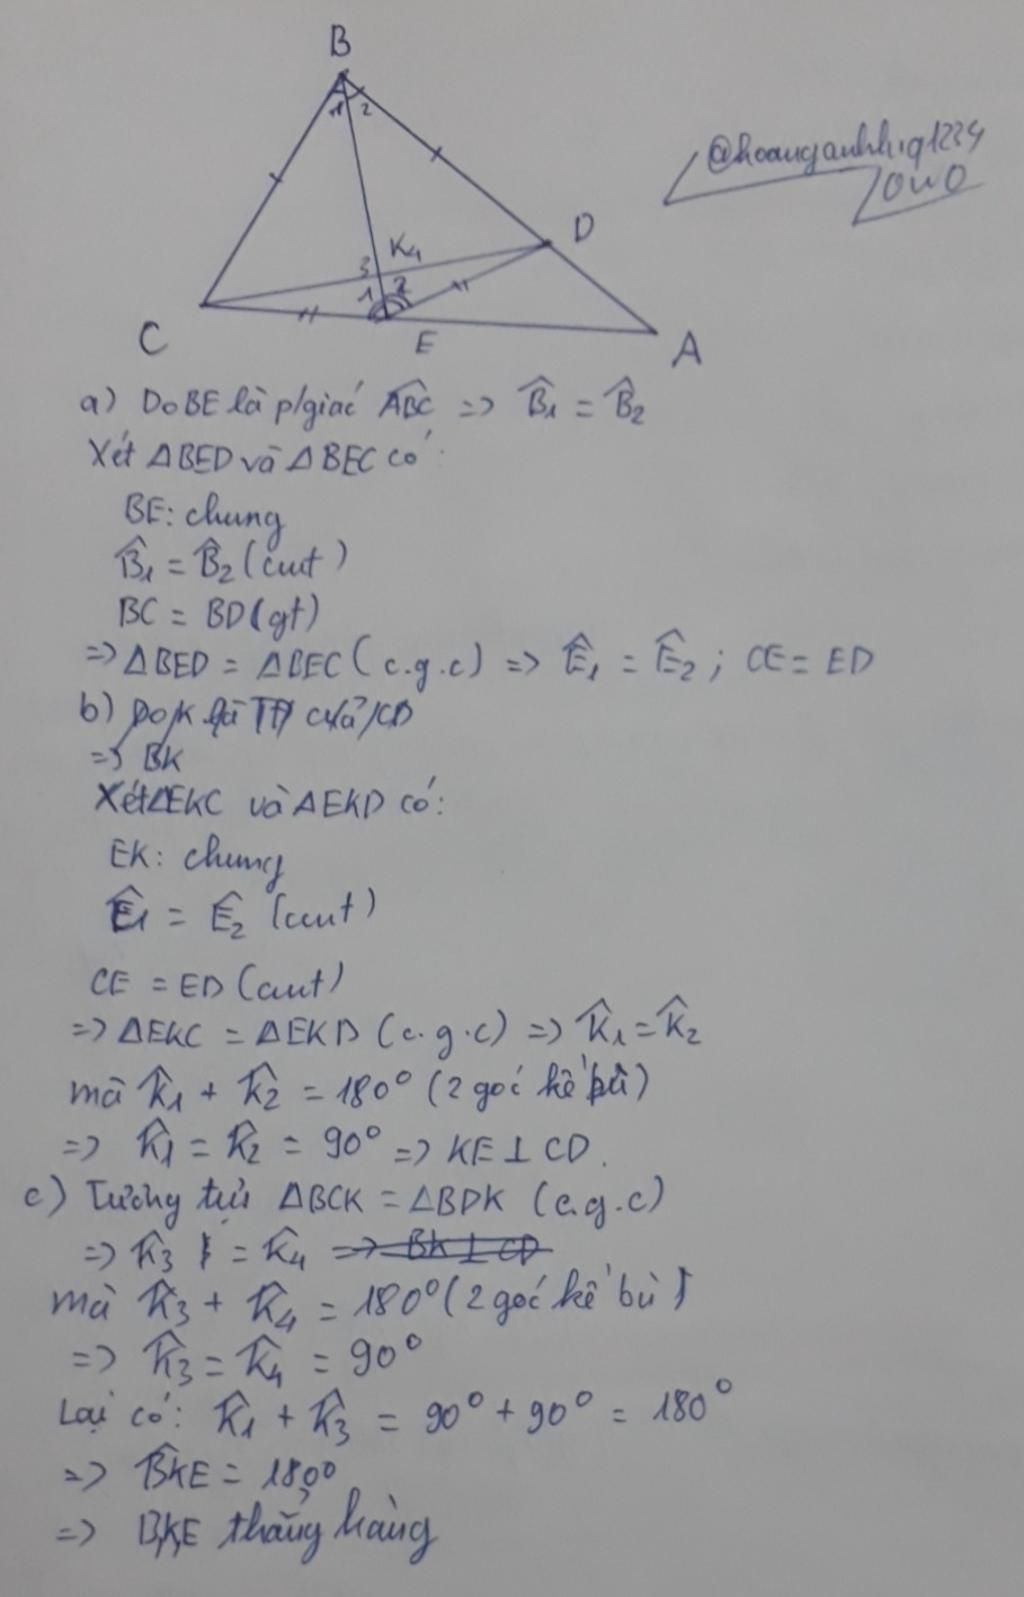 B
1 2
@hoanganhhiq1234
OwO
D
K4
3
1 2
C
E
A
a) Do BE là p/giác ABC̑ => B̂1 = B̂2
Xét ΔBED và ΔBEC có:
BE: chung
B̂1 = B̂2 (cmt)
BC = BD (gt)
=> ΔBED = ΔBEC (c.g.c) => Ê1 = Ê2 ; CE = ED
b) Do K là TĐ của CD
=> BK
Xét ΔEKC và ΔEKD có:
EK: chung
Ê1 = Ê2 (cmt)
CE = ED (cmt)
=> ΔEKC = ΔEKD (c.g.c) => K̂1 = K̂2
mà K̂1 + K̂2 = 180° (2 góc kề bù)
=> K̂1 = K̂2 = 90° => KE ⊥ CD.
c) Tương tự ΔBCK = ΔBDK (c.g.c)
=> K̂3 = K̂4 => BK ⊥ CD
mà K̂3 + K̂4 = 180° (2 góc kề bù)
=> K̂3 = K̂4 = 90°
Lại có: K̂1 + K̂3 = 90° + 90° = 180°
=> BK̂E = 180°
=> B,K,E thẳng hàng